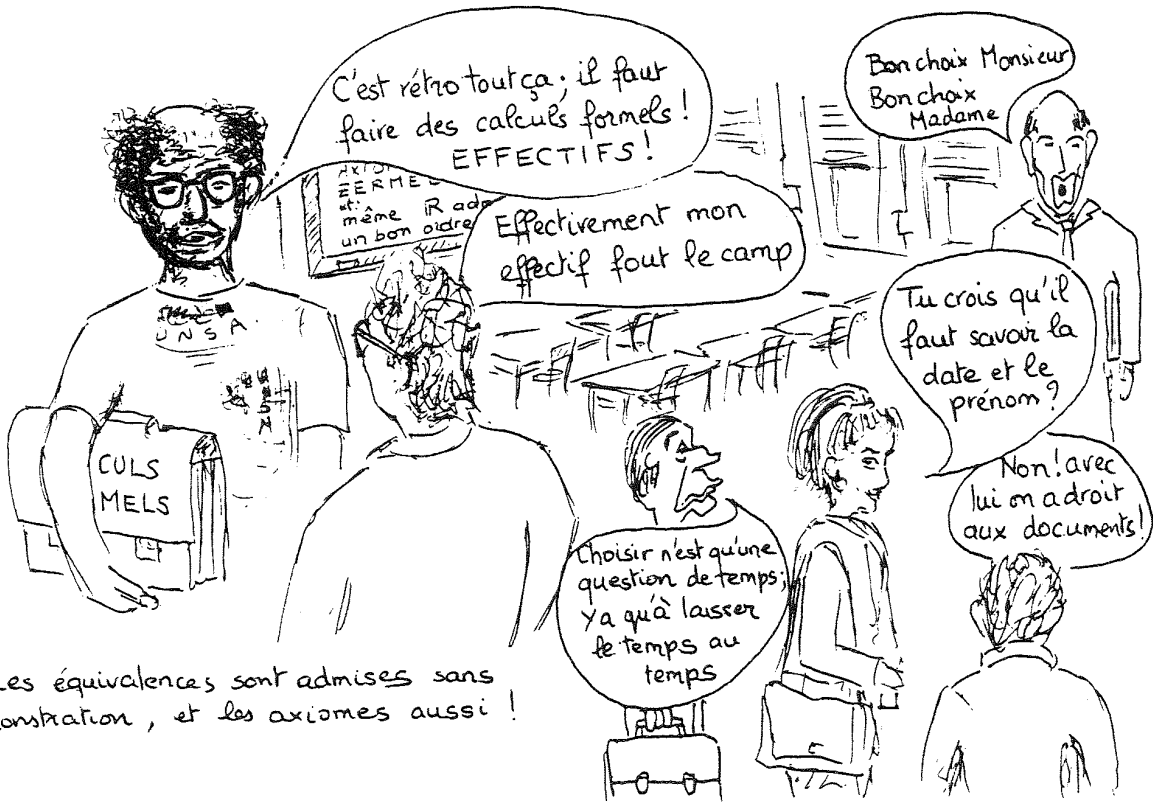 C'est rétro tout ça ; il faut
faire des calculs formels !
EFFECTIFS !
Bon choix Monsieur
Bon choix
Madame
ZERME
et :
même ℝ adm
un bon ordre
Effectivement mon
effectif fout le camp
UNSA
Tu crois qu'il
faut savoir la
date et le
prénom ?
Non ! avec
lui on a droit
aux documents !
CULS
MELS
Choisir n'est qu'une
question de temps ;
Y a qu'à laisser
le temps au
temps
Les équivalences sont admises sans
onstration, et les axiomes aussi !